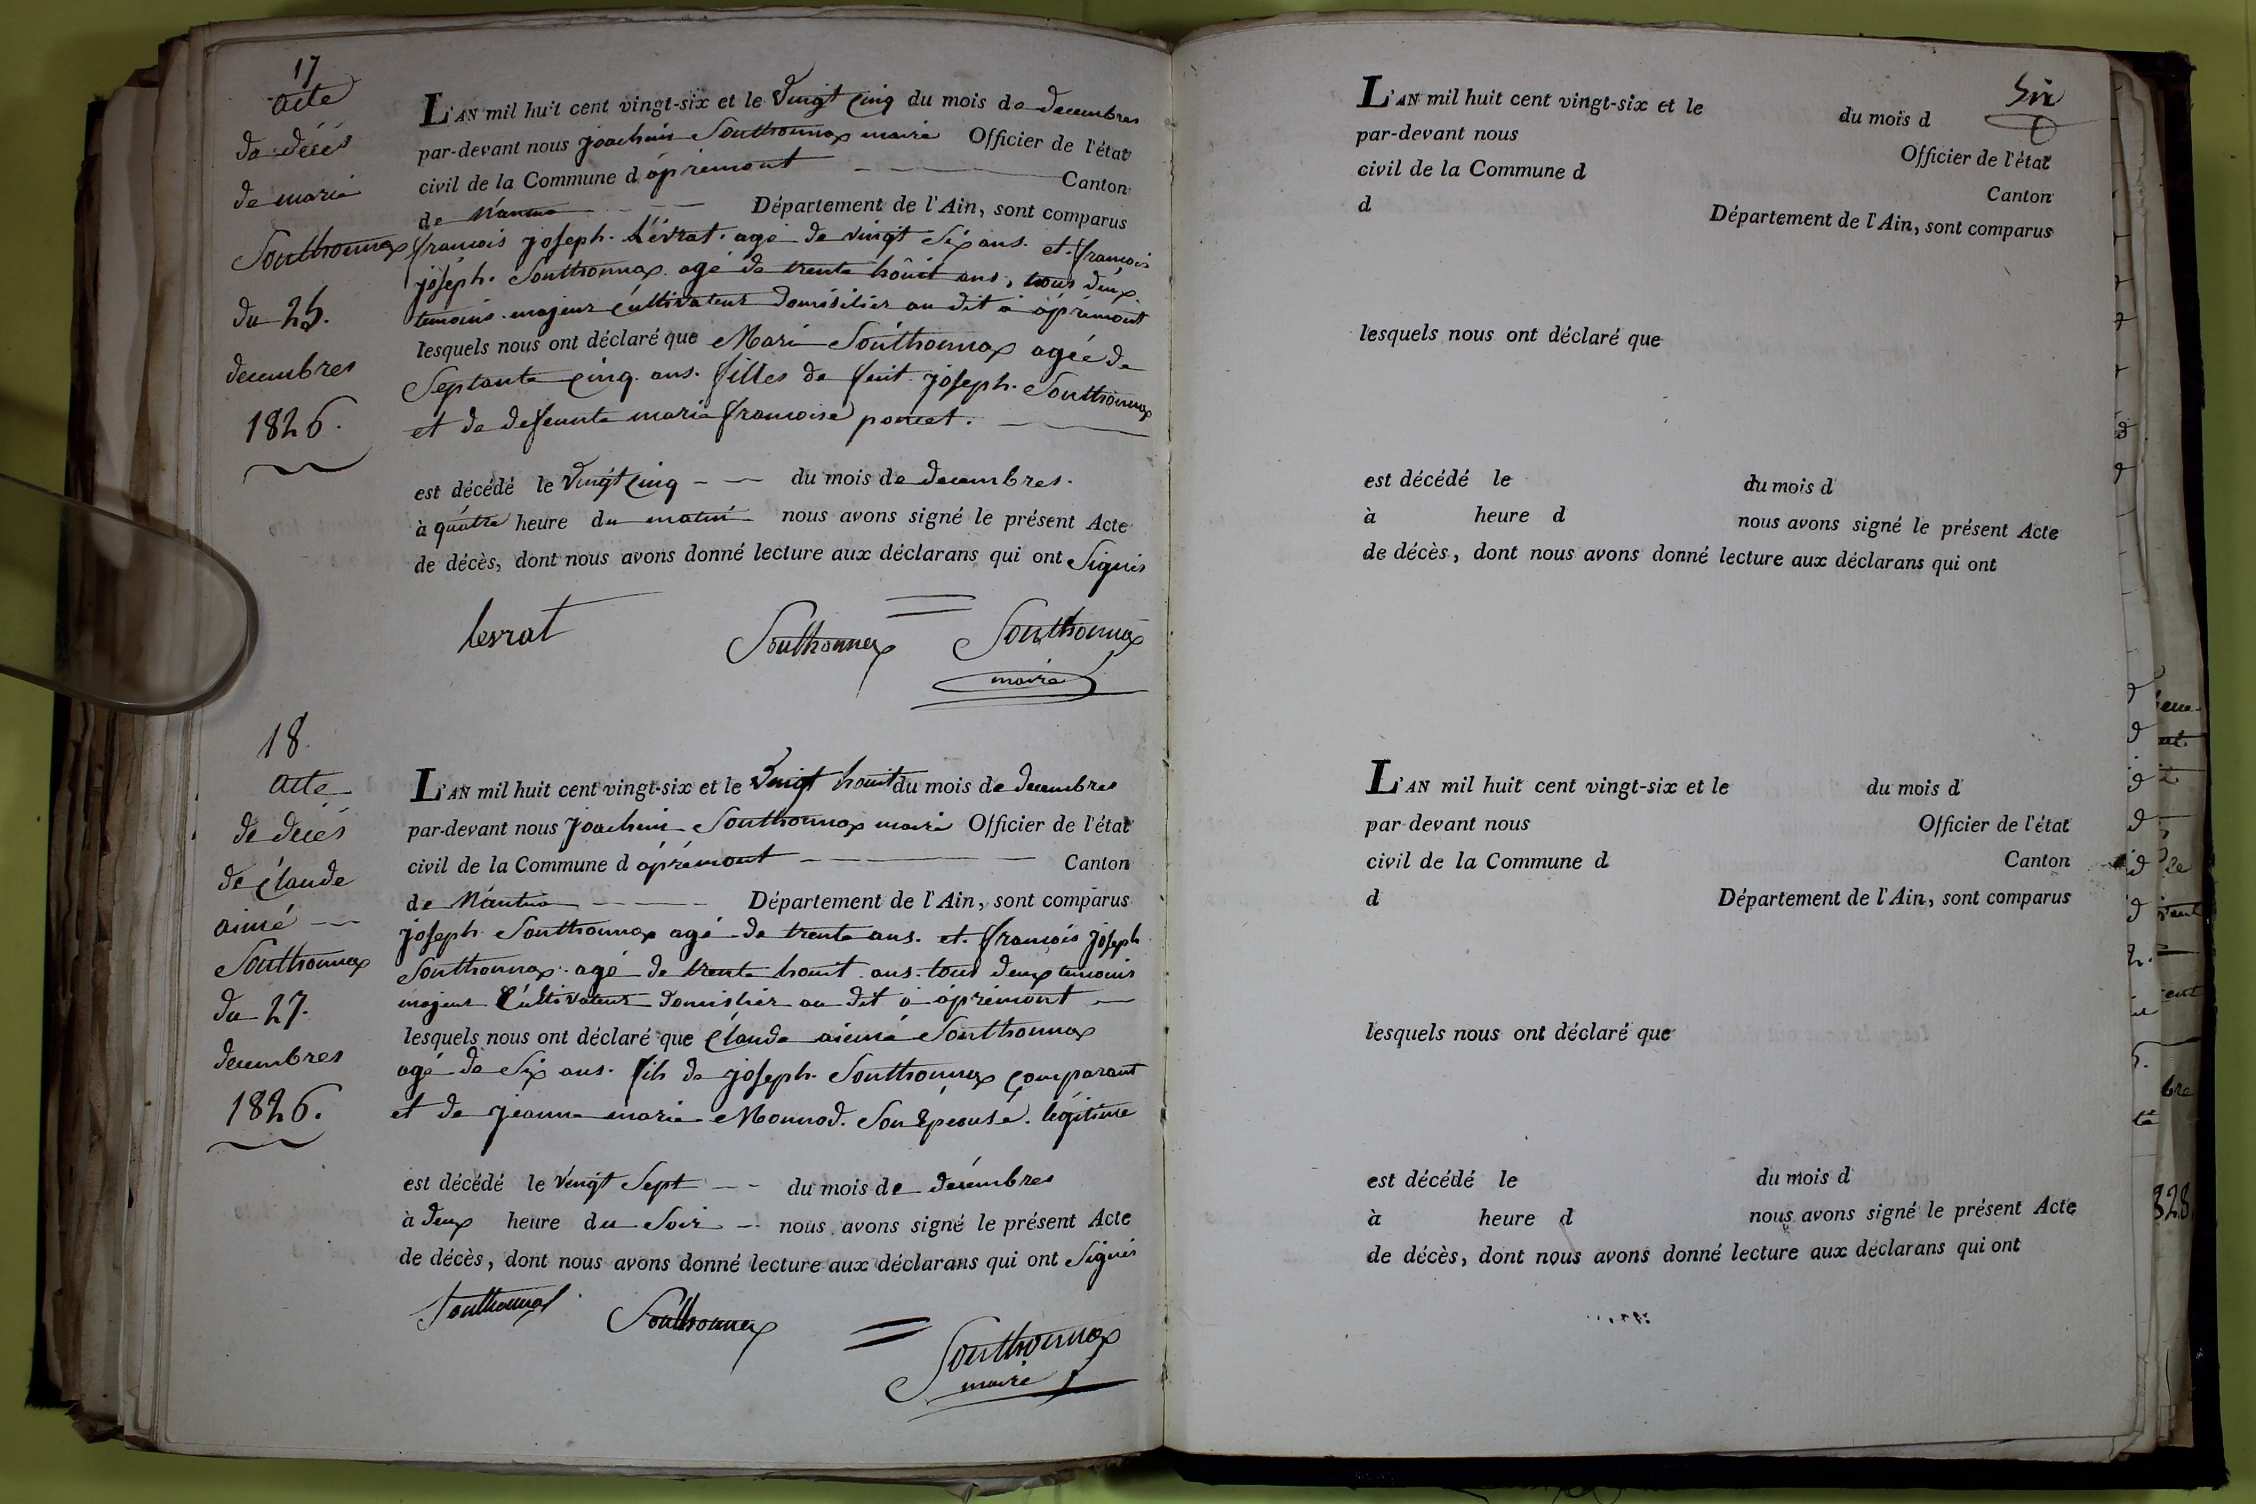 17
acte
de décés
de marie
Southonnax
du 25.
decembres
1826.
L'AN mil huit cent vingt-six et le vingt cinq du mois de decembres
par-devant nous joachim Southonnax maire Officier de l'état
civil de la Commune d'apremont Canton
de Nantua Département de l'Ain, sont comparus
francois joseph. Levrat. agé de vingt six ans. et. francois
joseph. Southonnax. agé de trente houit ans, tous deux
temoins. majeur cultivateur domisilier au dit a aprémont
lesquels nous ont déclaré que Mari Southonnax agée de
Septante cinq. ans. filles de feut. joseph. Southonnax
et de defeunte marie francoise poncet.
est décédé le vingt cinq du mois de decembres.
à quatre heure du matin nous avons signé le présent Acte
de décès, dont nous avons donné lecture aux déclarans qui ont Signés
levrat Southonnax Southonnax
maire
18.
acte
de decés
de Claude
aimé
Southonnax
du 27.
decembres
1826.
L'AN mil huit cent vingt-six et le vingt houit du mois de decembres
par-devant nous joachim Southonnax maire Officier de l'état
civil de la Commune d aprémont Canton
de Nantua Département de l'Ain, sont comparus
joseph Southonnax agé de trente ans. et. francois joseph
Southonnax. agé de trente houit ans. tous deux temoins
majeur Cultivateur domislier au dit a aprémont
lesquels nous ont déclaré que Claude aiemé Southonnax
agé de Six ans. fils de joseph. Southonnax comparant
et de jeanne marie Monnod. Son Epeouse. légitime
est décédé le vingt Sept du mois de decémbres
à deux heure du Soir nous avons signé le présent Acte
de décès, dont nous avons donné lecture aux déclarans qui ont Signés
Southonnax Southonnax
Southonnax
maire
Six
L'AN mil huit cent vingt-six et le du mois d
par-devant nous Officier de l'état
civil de la Commune d Canton
d Département de l'Ain, sont comparus
lesquels nous ont déclaré que
est décédé le du mois d
à heure d nous avons signé le présent Acte
de décès, dont nous avons donné lecture aux déclarans qui ont
L'AN mil huit cent vingt-six et le du mois d
par-devant nous Officier de l'état
civil de la Commune d Canton
d Département de l'Ain, sont comparus
lesquels nous ont déclaré que
est décédé le du mois d
à heure d nous avons signé le présent Acte
de décès, dont nous avons donné lecture aux déclarans qui ont